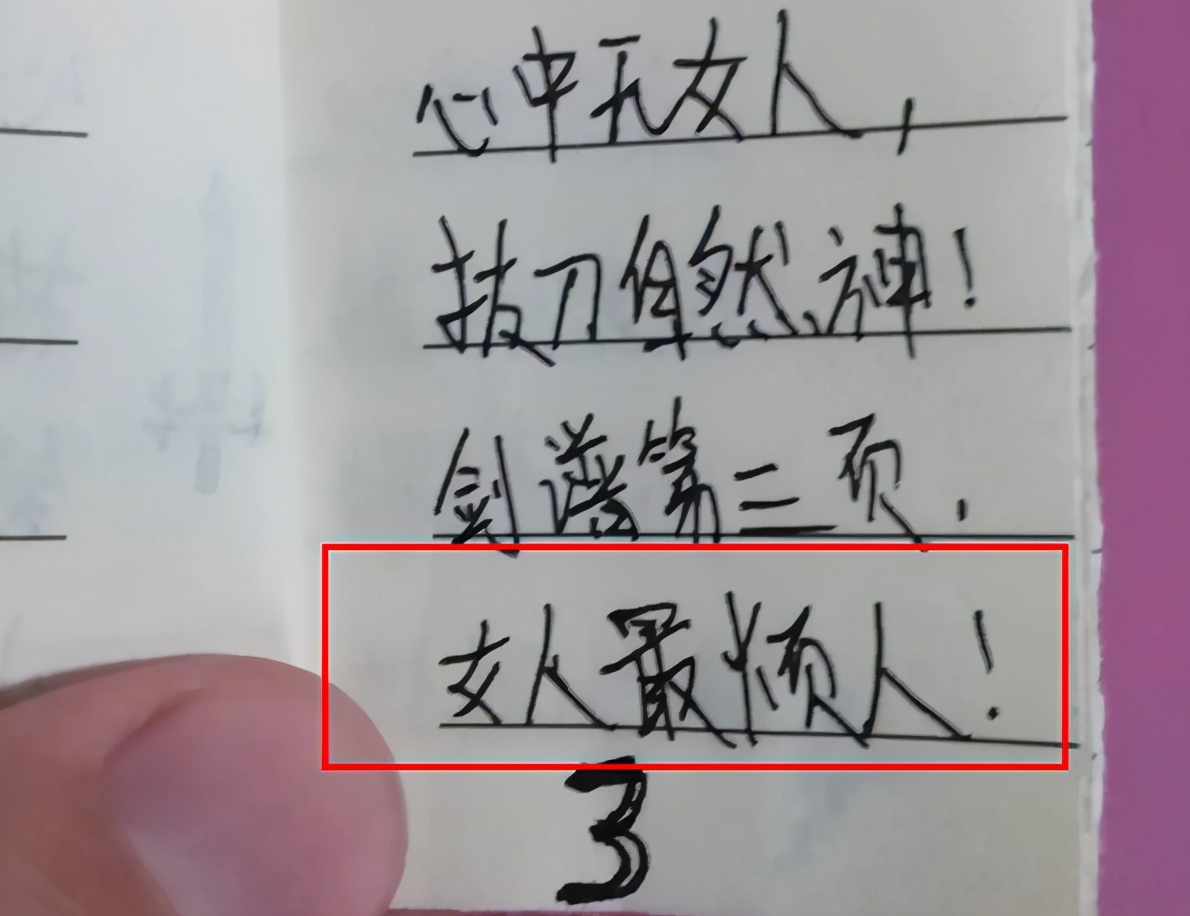 心中无女人，
拔刀自然神！
剑谱第三页.
女人最烦人！
3